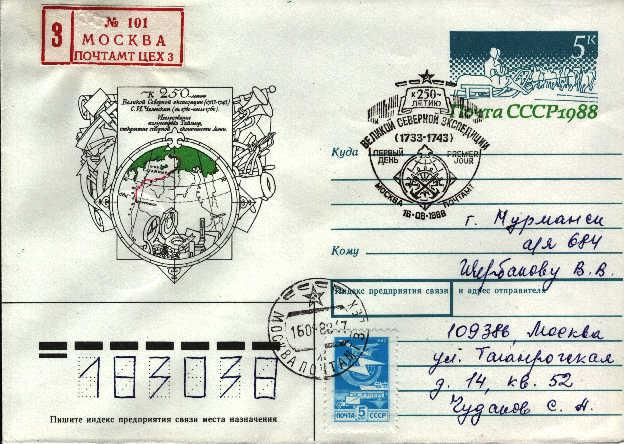 № 101
З МОСКВА
ПОЧТАМТ ЦЕХ 3
К 250-летию
Великой Северной экспедиции (1733-1743)
С.И. Челюскин
Исследование
полуострова Таймыр,
открытие северной оконечности Азии.
5К
Почта СССР 1988
К 250-
ЛЕТИЮ
ВЕЛИКОЙ СЕВЕРНОЙ ЭКСПЕДИЦИИ
(1733-1743)
ПЕРВЫЙ ДЕНЬ
PREMIER JOUR
МОСКВА ПОЧТАМТ
16-08-1988
Куда
г. Мурманск
а/я 684
Кому
Щербакову В. В.
Индекс предприятия связи и адрес отправителя
109386, Москва
ул. Таганрогская
д. 14, кв. 52
Чудаков С. А.
МОСКВА ПОЧТАМТ ЦЕХ 3
ПОЧТА 5К СССР
183038
Пишите индекс предприятия связи места назначения